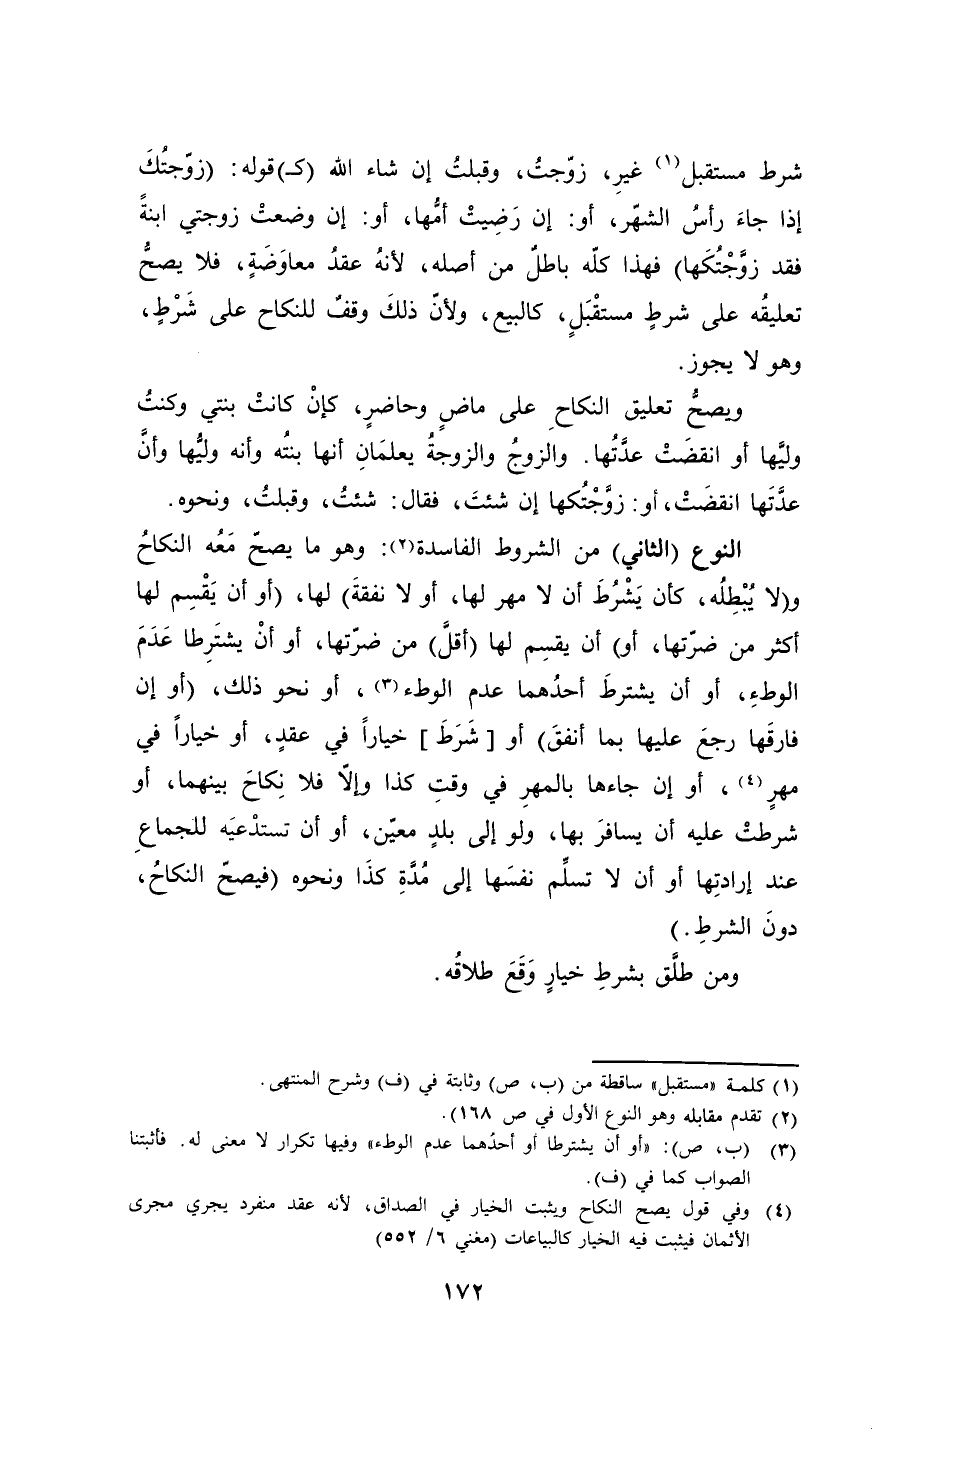 شرط مستقبل(١) غيرِ، زوّجتُ، وقبلتُ إن شاء الله (كـ)قوله: (زوّجتُكَ
إذا جاءَ رأسُ الشهْر، أو: إن رَضِيتْ أمُّها، أو: إن وضعتْ زوجتي ابنةً
فقد زوَّجْتُكَها) فهذا كلّه باطلٌ من أصله، لأنهُ عقدُ معاوَضَةٍ، فلا يصحُّ
تعليقُه على شرطٍ مستقْبَلٍ، كالبيع، ولأنّ ذلكَ وقفٌ للنكاح على شَرْطٍ،
وهو لا يجوز.
ويصحُّ تعليق النكاحِ على ماضٍ وحاضرٍ، كإنْ كانتْ بنتي وكنتُ
وليَّها أو انقضَتْ عدَّتُها. والزوجُ والزوجةُ يعلمَانِ أنها بنتُه وأنه وليُّها وأنَّ
عدَّتَها انقضَتْ، أو: زوَّجْتُكها إن شئتَ، فقال: شئتُ، وقبلتُ، ونحوه.
النوع (الثاني) من الشروط الفاسدة(٢): وهو ما يصحّ مَعُه النكاحُ
و(لا يُبْطِلُه، كأن يَشْرُطَ أن لا مهر لها، أو لا نفقةَ) لها، (أو أن يَقْسِم لها
أكثر من ضرّتها، أو) أن يقسِم لها (أقلَّ) من ضرّتها، أو أنْ يشترِطا عَدَمَ
الوطءِ، أو أن يشترطَ أحدُهما عدم الوطء(٣)، أو نحو ذلك، (أو إن
فارقَها رجعَ عليها بما أنفقَ) أو [شَرَطَ] خياراً في عقدٍ، أو خياراً في
مهرٍ(٤)، أو إن جاءها بالمهرِ في وقتِ كذا وإلّا فلا نِكاحَ بينهما، أو
شرطتْ عليه أن يسافرَ بها، ولو إلى بلدٍ معيّن، أو أن تستدْعيَه للجماعِ
عند إرادتِها أو أن لا تسلِّم نفسَها إلى مُدَّةِ كذَا ونحوه (فيصحّ النكاحُ،
دونَ الشرطِ.)
ومن طلَّق بشرطِ خيارٍ وَقَعَ طلاقُه.
(١) كلمة «مستقبل» ساقطة من (ب، ص) وثابتة في (ف) وشرح المنتهى.
(٢) تقدم مقابله وهو النوع الأول في ص ١٦٨).
(٣) (ب، ص): «أو أن يشترطا أو أحدُهما عدم الوطء» وفيها تكرار لا معنى له. فأثبتنا
الصواب كما في (ف).
(٤) وفي قول يصح النكاح ويثبت الخيار في الصداق، لأنه عقد منفرد يجري مجرى
الأثمان فيثبت فيه الخيار كالبياعات (مغني ٦/ ٥٥٢)
١٧٢